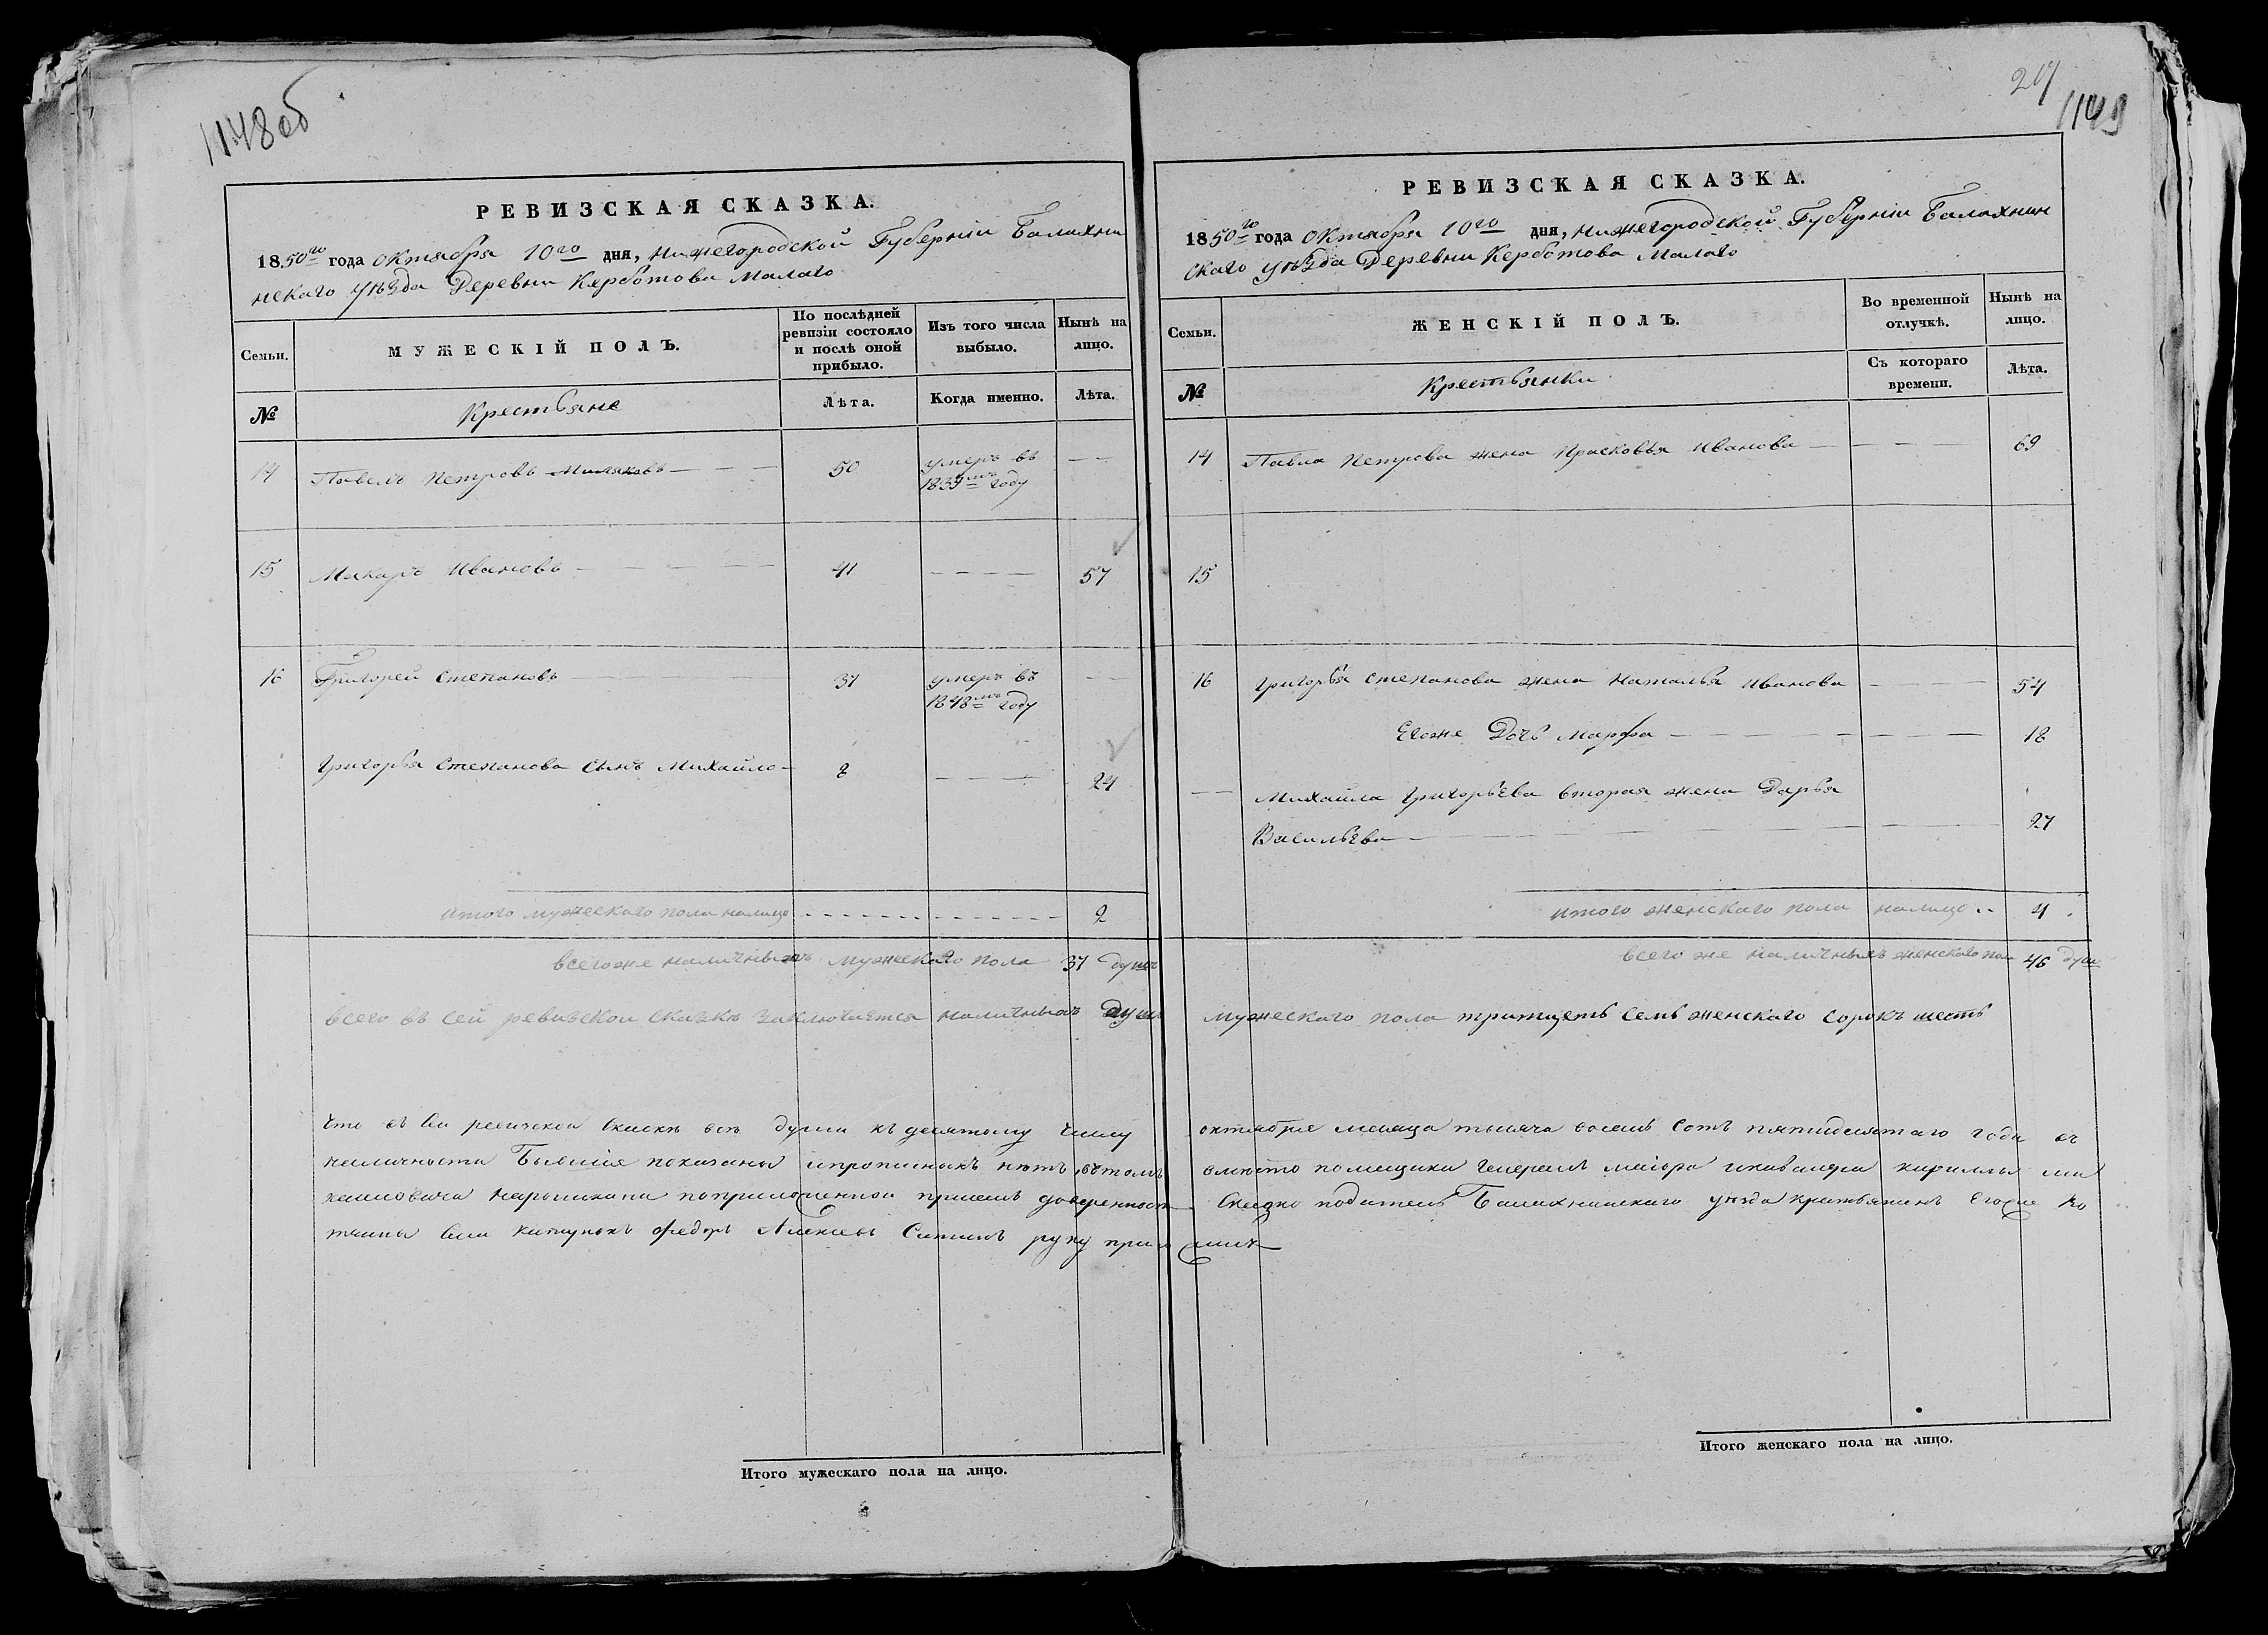 1148об
РЕВИЗСКАЯ СКАЗКА.
1850го года октября 10го дня, Нижегородской Губерніи Балахни
нскаго уѣзда Деревни Керботова Малаго
Семьи.
МУЖЕСКІЙ ПОЛЪ.
По послѣдней ревизіи состояло и послѣ оной прибыло.
Изъ того числа выбыло.
Нынѣ на лицо.
№
Крестьяне
Лѣта.
Когда именно.
Лѣта.
14 Павелъ Петровъ 50 умеръ въ
1839мъ году
15 Макаръ Ивановъ 41 57
16 Григорей Степановъ 37 умеръ въ
1848мъ году
Григорья Степанова сынъ Михайло 8 24
итого мужескаго пола налицо 2
всегоже наличныхъ мужескаго пола 37 душъ
всего въ сей ревизской сказкѣ заключается наличныхъ душъ
Что въ сей ревизской скаскѣ всѣ души къ десятому числу
наличности бывшія показаны и прописныхъ нѣтъ, въ томъ
Нарышкина доверенности
Федоръ Алексеевъ руку прило
Итого мужескаго пола на лицо.
1149
РЕВИЗСКАЯ СКАЗКА.
1850го года октября 10го дня, Нижегородской Губерніи Балахнин
скаго уѣзда Деревни Керботова Малаго
Семьи.
ЖЕНСКІЙ ПОЛЪ.
Во временной отлучкѣ.
Нынѣ на лицо.
№
Крестьянки
Съ котораго времени.
Лѣта.
14 Павла Петрова жена Прасковья Иванова 69
15
16 Григорья Степанова жена Наталья Иванова 54
Егоже дочь Марфа 18
Михайла Григорьева вторая жена Дарья
Васильева 27
итого женскаго пола налицо 4
всего же наличныхъ женскаго пола 46 душъ
мужескаго пола тритцеть семь женскаго сорокъ шесть
октебрие месяца тысяча восемь сотъ пятидесятаго года въ
вместо помещика генералъ маіора икавалера кириллы ми
сказко подателъ Балахнинскаго уѣзда крестьянинъ Егоже во
жилъ
Итого женскаго пола на лицо.